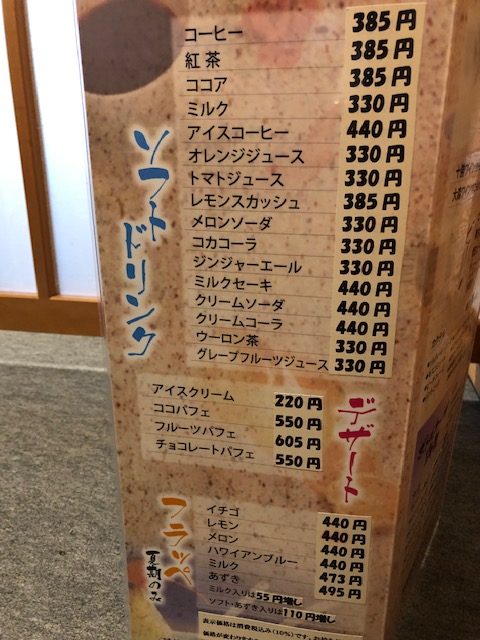 ソフトドリンク
コーヒー 385円
紅茶 385円
ココア 385円
ミルク 330円
アイスコーヒー 440円
オレンジジュース 330円
トマトジュース 330円
レモンスカッシュ 385円
メロンソーダ 330円
コカコーラ 330円
ジンジャーエール 330円
ミルクセーキ 440円
クリームソーダ 440円
クリームコーラ 440円
ウーロン茶 330円
グレープフルーツジュース 330円
デザート
アイスクリーム 220円
ココパフェ 550円
フルーツパフェ 605円
チョコレートパフェ 550円
フラッペ
夏期のみ
イチゴ 440円
レモン 440円
メロン 440円
ハワイアンブルー 440円
ミルク 473円
あずき 495円
ミルク入りは55円増し
ソフト・あずき入りは110円増し
表示価格は消費税込み(10%)です。